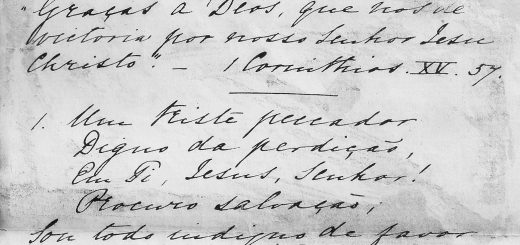 "Graças a Deos, que nos dê
victoria por nosso Senhor Jesu
Christo." — 1 Corinthios. XV. 57.
1. Um triste peccador
Digno da perdição,
Em Ti, Jesus, Senhor!
Procuro salvação;
Sou todo indigno de favor